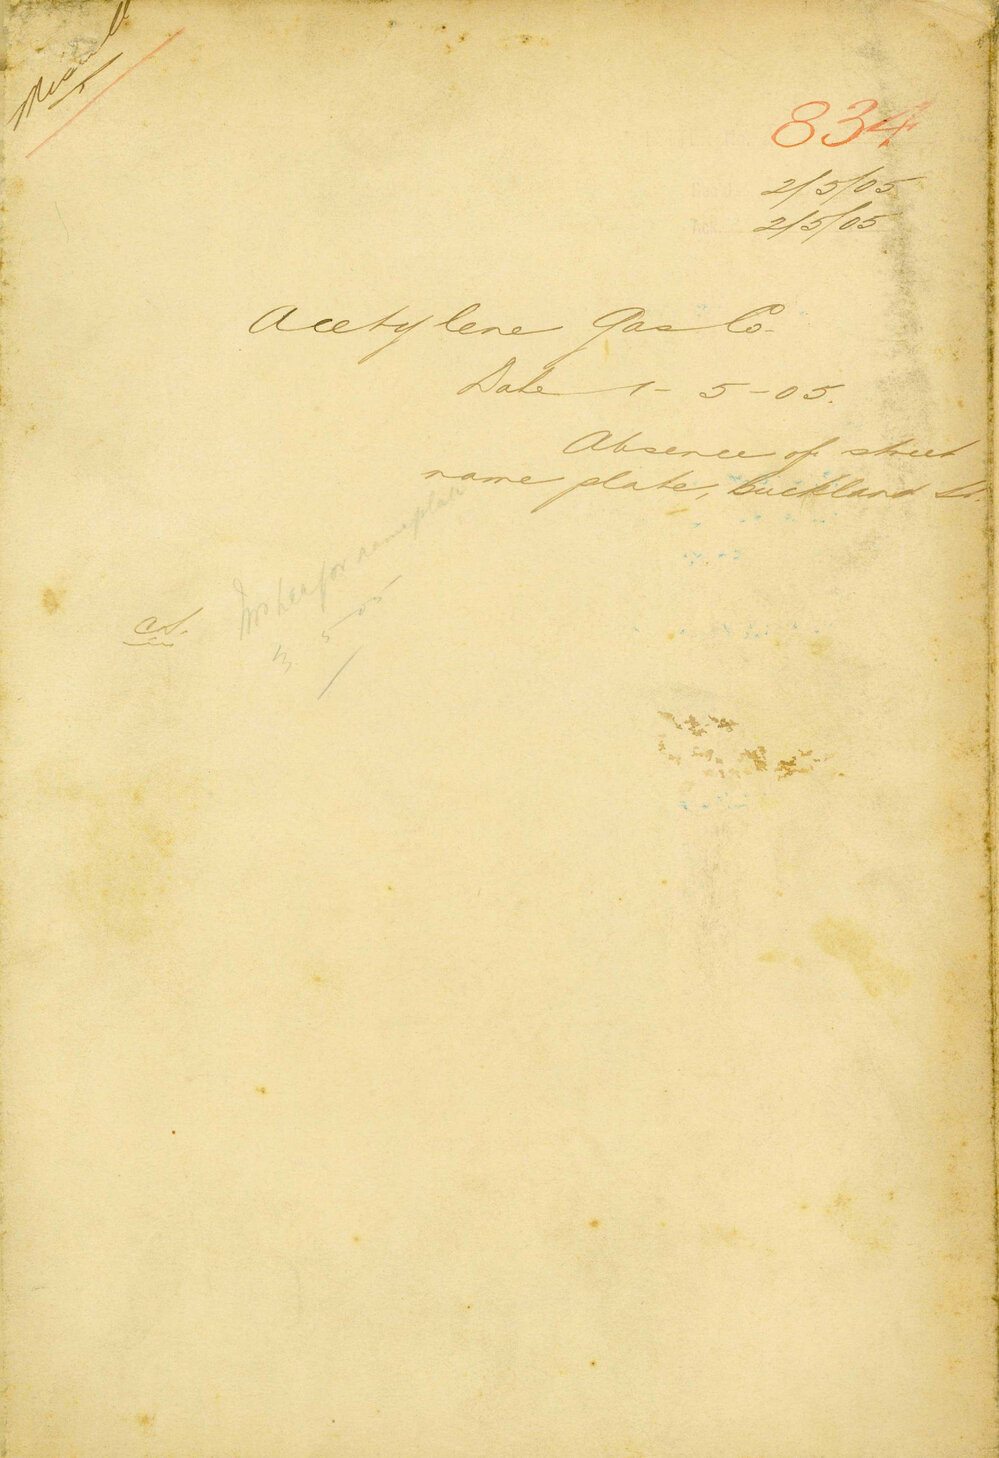 834
2/5/05
2/5/05
Acetylene Gas Co.
Date 1-5-05.
Absence of street
name plate, Buckland St.
for nameplate
3 5 05